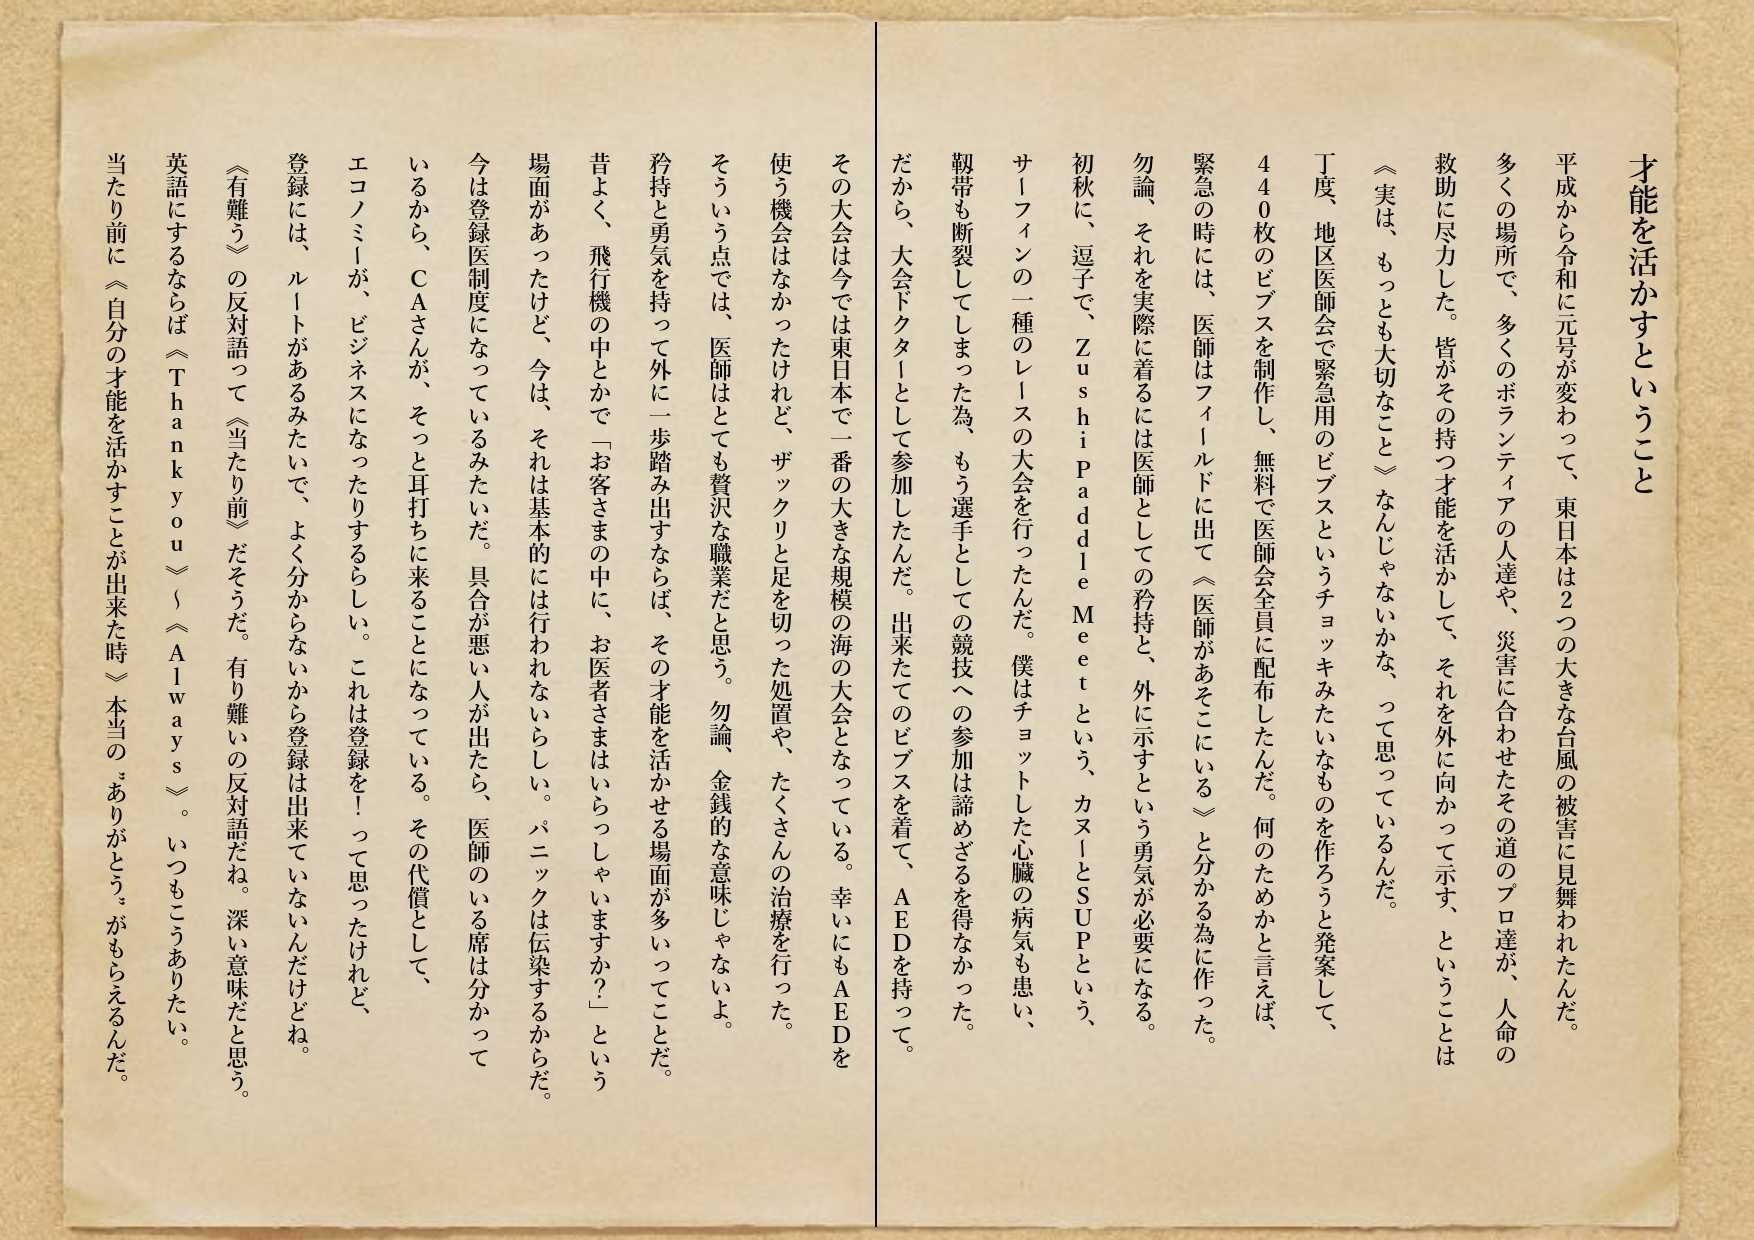 才能を活かすということ
平成から令和に元号が変わって、東日本は2つの大きな台風の被害に見舞われたんだ。
多くの場所で、多くのボランティアの人達や、災害に合わせたその道のプロ達が、人命の
救助に尽力した。皆がその持つ才能を活かして、それを外に向かって示す、ということは
《実は、もっとも大切なこと》なんじゃないかな、って思っているんだ。
丁度、地区医師会で緊急用のビブスというチョッキみたいなものを作ろうと発案して、
440枚のビブスを制作し、無料で医師会全員に配布したんだ。何のためかと言えば、
緊急の時には、医師はフィールドに出て《医師があそこにいる》と分かる為に作った。
勿論、それを実際に着るには医師としての矜持と、外に示すという勇気が必要になる。
初秋に、逗子で、Zushi Paddle Meetという、カヌーとSUPという、
サーフィンの一種のレースの大会を行ったんだ。僕はチョットした心臓の病気も患い、
靱帯も断裂してしまった為、もう選手としての競技への参加は諦めざるを得なかった。
だから、大会ドクターとして参加したんだ。出来たてのビブスを着て、AEDを持って。
その大会は今では東日本で一番の大きな規模の海の大会となっている。幸いにもAEDを
使う機会はなかったけれど、ザックリと足を切った処置や、たくさんの治療を行った。
そういう点では、医師はとても贅沢な職業だと思う。勿論、金銭的な意味じゃないよ。
矜持と勇気を持って外に一歩踏み出すならば、その才能を活かせる場面が多いってことだ。
昔よく、飛行機の中とかで「お客さまの中に、お医者さまはいらっしゃいますか？」という
場面があったけど、今は、それは基本的には行われないらしい。パニックは伝染するからだ。
今は登録医制度になっているみたいだ。具合が悪い人が出たら、医師のいる席は分かって
いるから、CAさんが、そっと耳打ちに来ることになっている。その代償として、
エコノミーが、ビジネスになったりするらしい。これは登録を！って思ったけれど、
登録には、ルートがあるみたいで、よく分からないから登録は出来ていないんだけどね。
《有難う》の反対語って《当たり前》だそうだ。有り難いの反対語だね。深い意味だと思う。
英語にするならば《Thank you》～《Always》。いつもこうありたい。
当たり前に《自分の才能を活かすことが出来た時》本当の〝ありがとう〟がもらえるんだ。